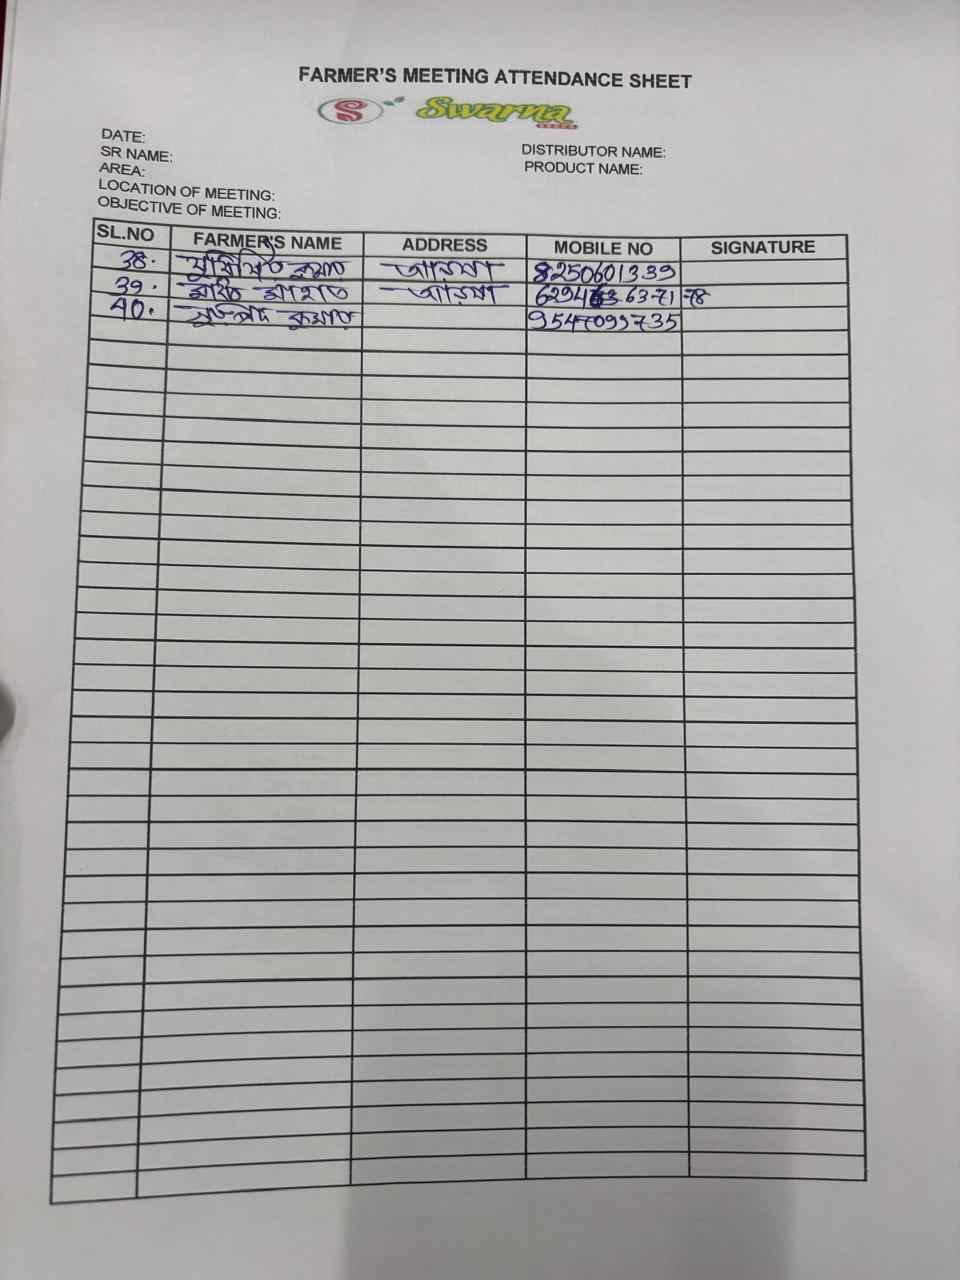 FARMER'S MEETING ATTENDANCE SHEET
S Swarna
DATE:
SR NAME:
AREA:
LOCATION OF MEETING:
OBJECTIVE OF MEETING:
DISTRIBUTOR NAME:
PRODUCT NAME:
SL.NO FARMER'S NAME ADDRESS MOBILE NO SIGNATURE
38. কুমার 8250601339
39. মাহাত
40. কুমার 9547099735